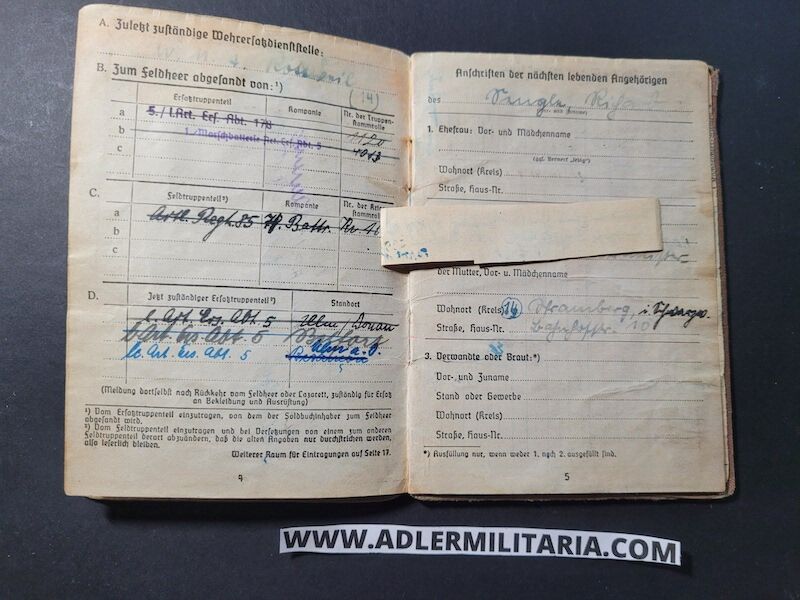 A. Zuletzt zuständige Wehrersatzdienststelle:
W. M. A. Rottweil
(14)
B. Zum Feldheer abgesandt von:¹)
Ersatztruppenteil Kompanie Nr. der Truppenstammrolle
a 5./l.Art. Ers. Abt. 178
b 1. Marschbatterie Art. Ers. Abt. 5 1120
c 4013
C. Feldtruppenteil²) Kompanie Nr. der Kriegsstammrolle
a Artl. Regt. 85 Battr.
b
c
D. Jetzt zuständiger Ersatztruppenteil²) Standort
l. Art. Ers. Abt. 5 Ulm/Donau
l. Art. Ers. Abt. 5
l. Art. Ers. Abt. 5 Ulm a. D.
(Meldung dortselbst nach Rückkehr vom Feldheer oder Lazarett, zuständig für Ersatz
an Bekleidung und Ausrüstung)
¹) Vom Ersatztruppenteil einzutragen, von dem der Soldbuchinhaber zum Feldheer
abgesandt wird.
²) Vom Feldtruppenteil einzutragen und bei Versetzungen von einem zum anderen
Feldtruppenteil derart abzuändern, daß die alten Angaben nur durchstrichen werden,
also leserlich bleiben.
Weiterer Raum für Eintragungen auf Seite 17.
4
Anschriften der nächsten lebenden Angehörigen
des Sengle, Richard
(Vor- und Zuname)
1. Ehefrau: Vor- und Mädchenname
(ggf. Vermerk „ledig“)
Wohnort (Kreis)
Straße, Haus-Nr.
der Mutter, Vor- u. Mädchenname
Wohnort (Kreis) (14) Schramberg, i.
Straße, Haus-Nr. Bahnhofstr. 10
3. Verwandte oder Braut:*)
Vor- und Zuname
Stand oder Gewerbe
Wohnort (Kreis)
Straße, Haus-Nr.
*) Ausfüllung nur, wenn weder 1. noch 2. ausgefüllt sind.
5
WWW.ADLERMILITARIA.COM